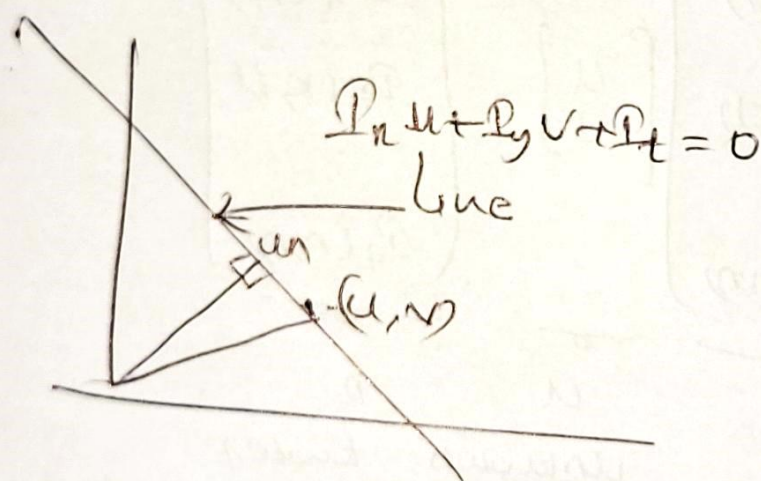 Iₓu+I_yv+I_t = 0
Line
un
(u,v)